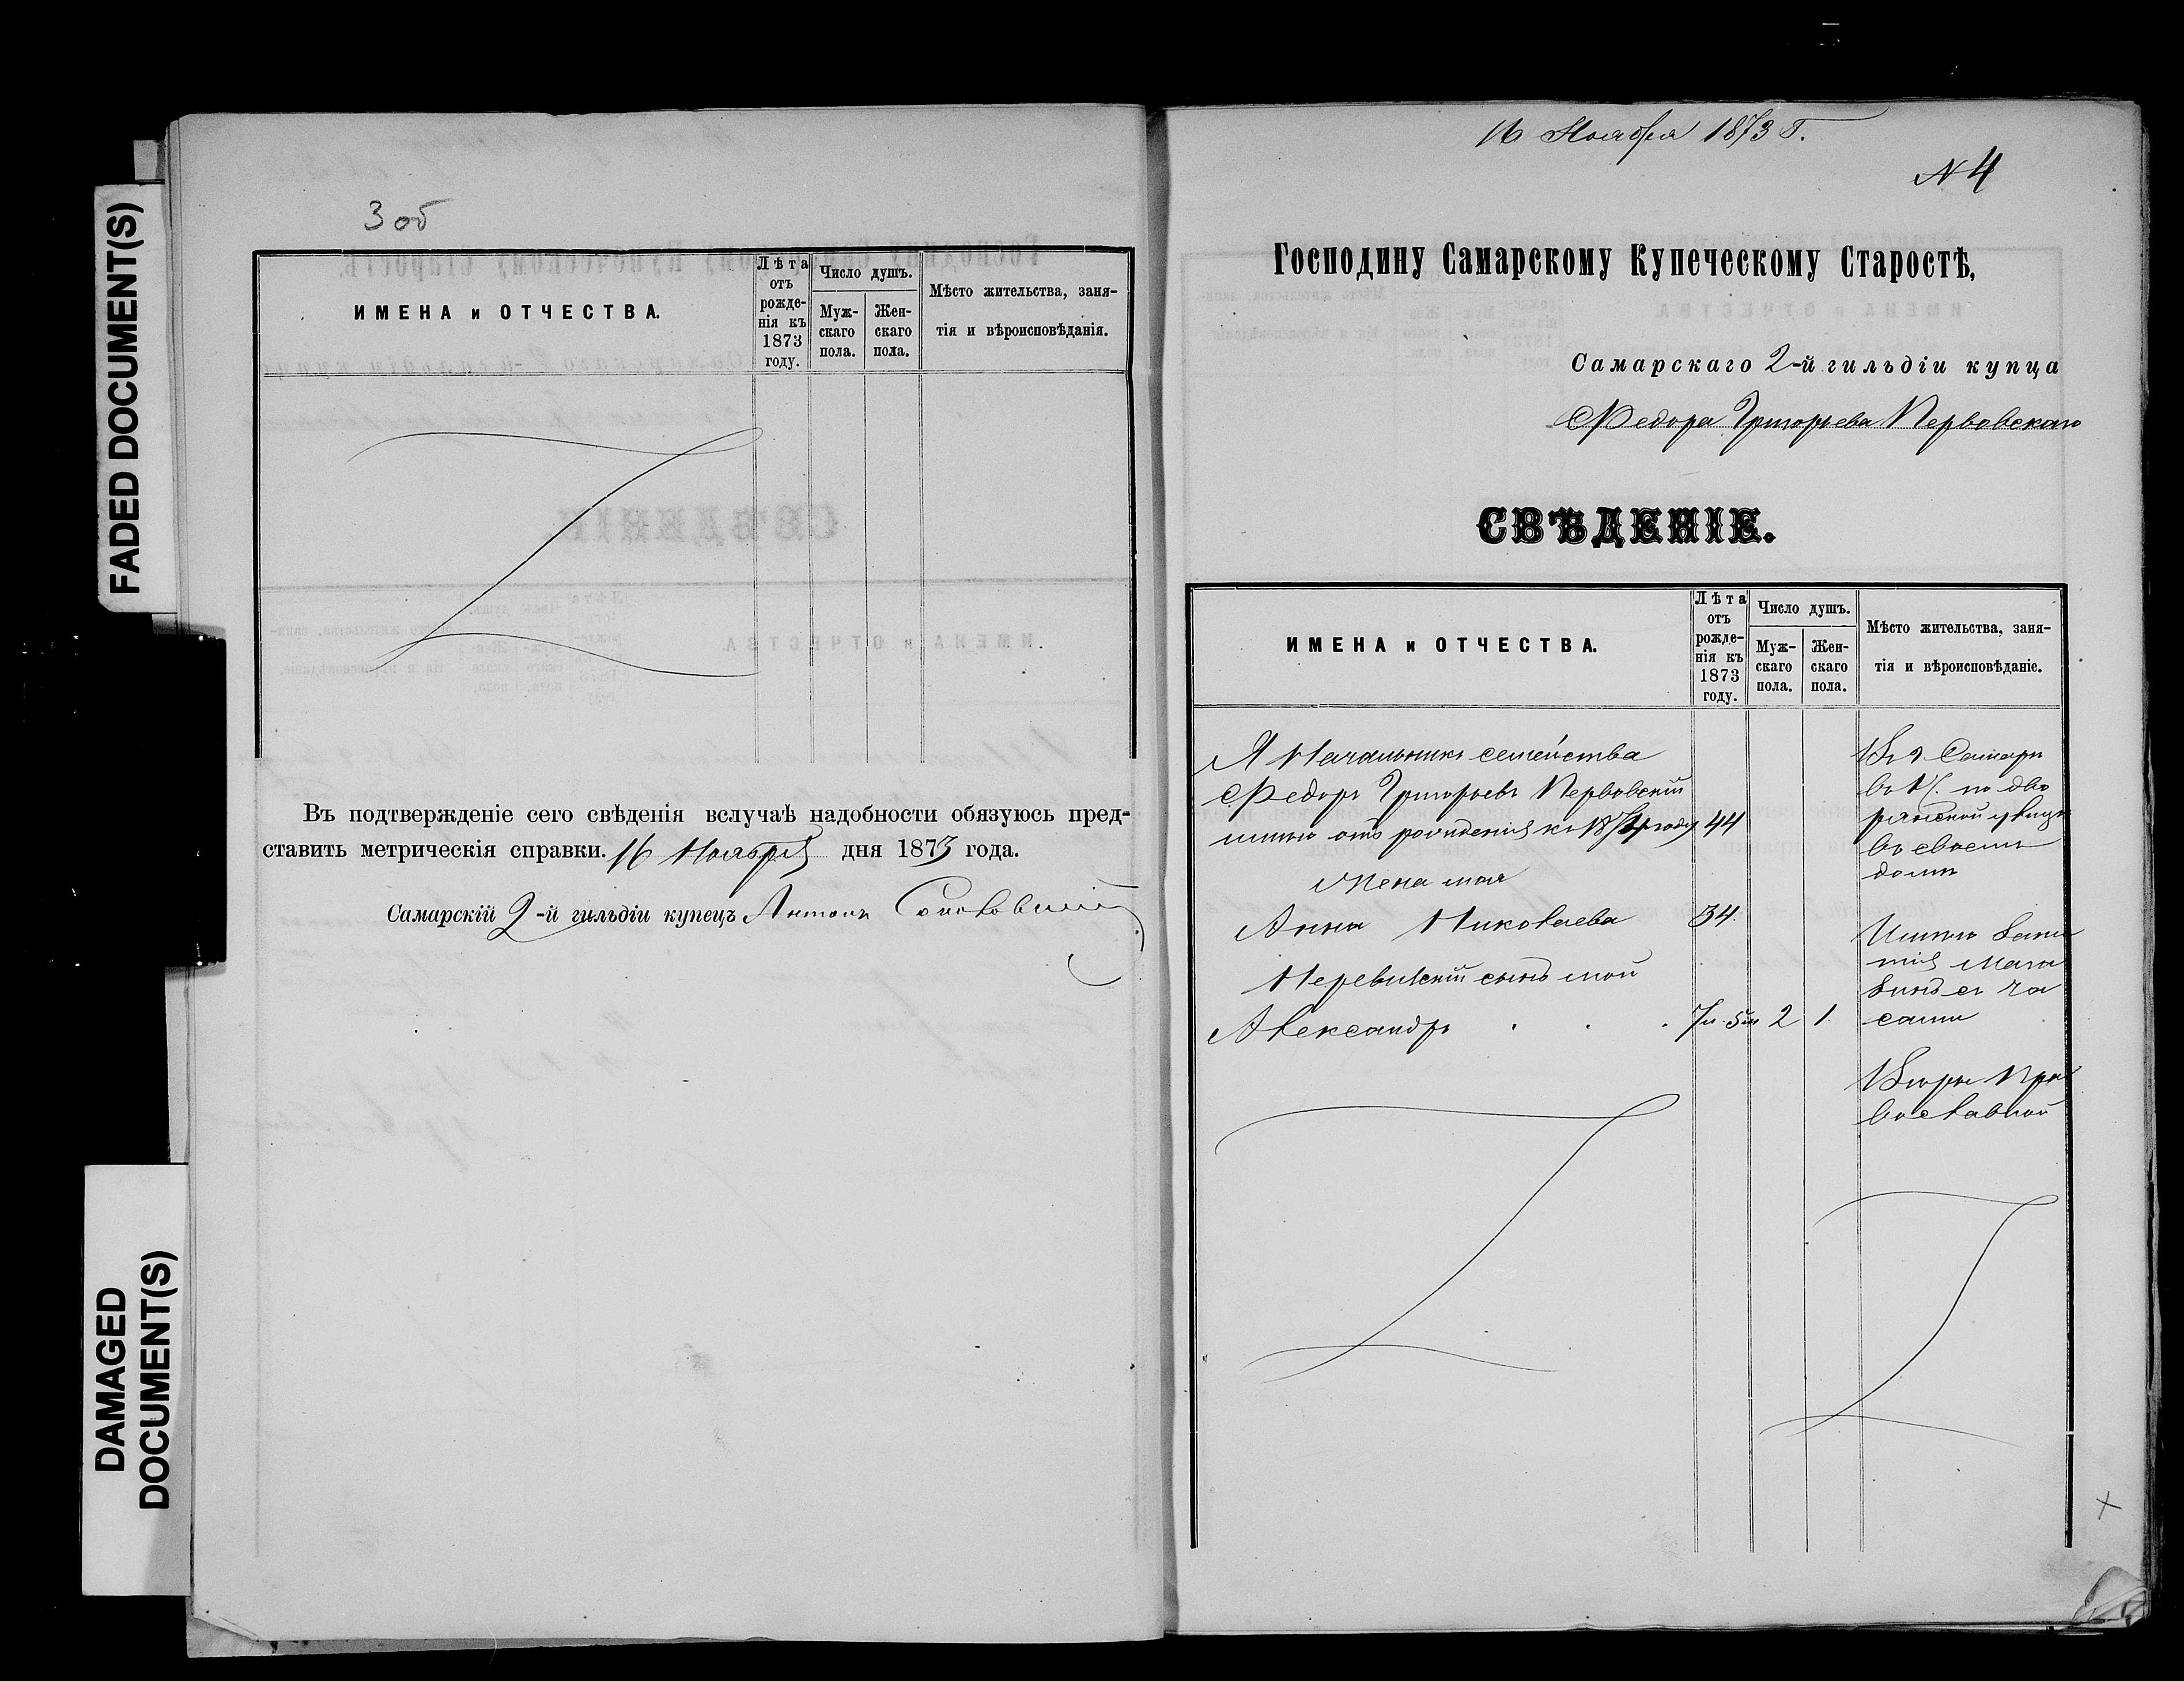 FADED DOCUMENT(S)
DAMAGED
DOCUMENT(S)
3 об
ИМЕНА и ОТЧЕСТВА.
Лѣта отъ рожденія къ 1873 году.
Число душъ.
Мужскаго пола.
Женскаго пола.
Мѣсто жительства, заня-
тія и вѣроисповѣданія.
Въ подтвержденіе сего свѣденія вслучаѣ надобности обязуюсь пред-
ставить метрическія справки. 16 Ноября дня 1873 года.
Самарскій 2-й гильдіи купецъ Антонъ
16 Ноября 1873 Г.
N 4
Господину Самарскому Купеческому Старостѣ,
Самарскаго 2-й гильдіи купца
Федора Григорьева Перловскаго
СВѢДЕНІЕ.
ИМЕНА и ОТЧЕСТВА.
Лѣта
отъ
рожде-
нія къ
1873
году.
Число душъ.
Муж-
скаго
пола.
Жен-
скаго
пола.
Мѣсто жительства, заня-
тія и вѣроисповѣданіе.
Я Начальникъ семейства
Федоръ Григорьевъ Перловскій
имѣю отъ рожденія къ 1874 году 44
Жена моя
Анна Николаева 34.
сынъ мой
Александръ . . . 7 л. 5 м 2 1.
Въ г Самарѣ
по дво
рянской улицѣ
въ своемъ
домѣ
Имѣю заня
тія мага
зинъ съ ча
сами
Вѣры Пра
вославной